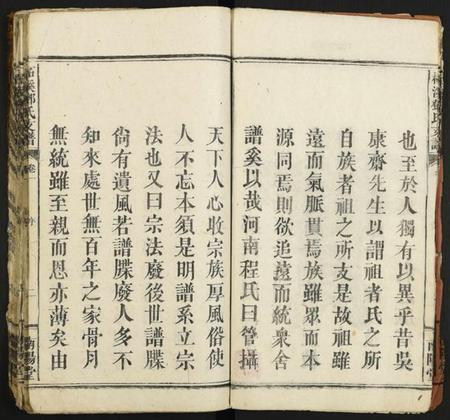 也至於人獨有以異乎昔吳
康齋先生以謂祖者氏之所
自族者祖之所支是故祖雖
遠而氣脈貫焉族雖眾而本
源同焉則欲追遠而統衆舍
譜奚以哉河南程氏曰管攝
天下人心收宗族厚風俗使
人不忘本須是明譜系立宗
法也又曰宗法廢後世譜牒
尙有遺風若譜牒廢人多不
知來處世無百年之家骨月
無統雖至親而恩亦薄矣由
鄧氏支譜
卷一
序
南陽堂